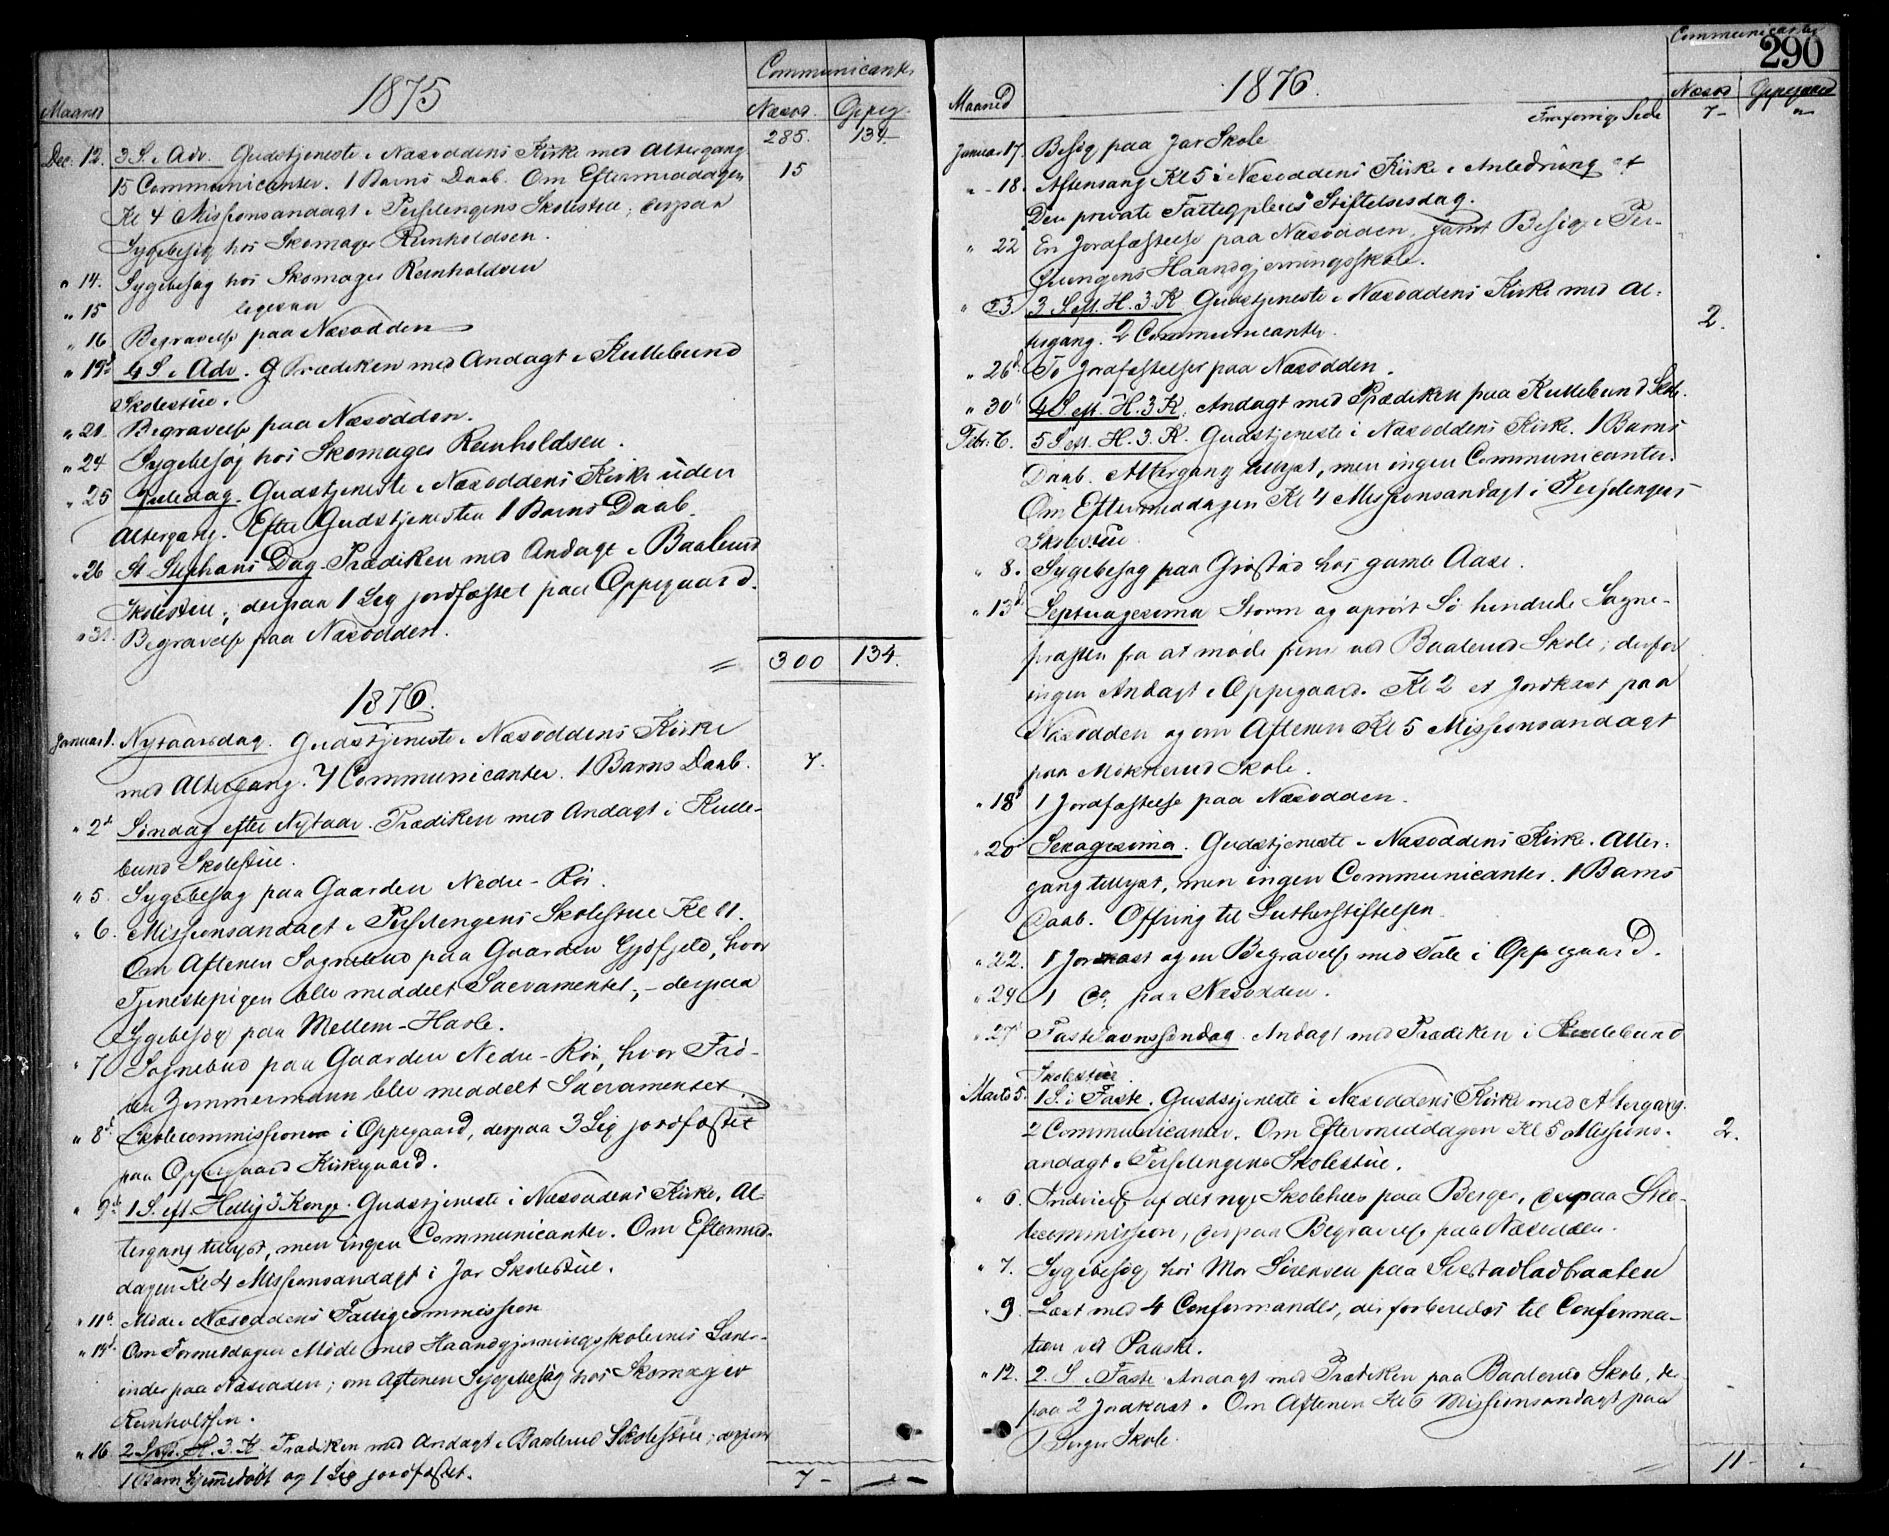 1875
Communicanter
Maaned
Næsod. Oppeg.
285. 134
Dec. 12. 3 S. i Adv. Gudstjeneste i Næsoddens Kirke med Altergang
15 Communicanter. 1 Barns Daab. Om Eftermiddagen 15
Kl 4 Missionsandagt i Skolestue; derpaa
Sygebesøg hos Skomager Reinholdsen.
" 14. Sygebesøg hos Skomager Reinholdsen
" 15 ligesaa
" 16 Begravelse paa Næsodden
" 19d 4 S. i Adv. Prædiken med Andagt i Kullebund
Skolestue.
" 21. Begravelse paa Næsodden.
" 24 Sygebesøg hos Skomager Reinholdsen.
" 25 Juledag. Gudstjeneste i Næsoddens Kirke uden
Altergang. Efter Gudstjenesten 1 Barns Daab.
" 26 St. Stephans Dag. Prædiken med Andagt i Baalerud
Skolestue; derpaa 1 Lig jordfæstet paa Oppegaard.
" 31. Begravelse paa Næsodden.
= 300 134.
1876.
Januar 1. Nytaarsdag. Gudstjeneste i Næsoddens Kirke
med Altergang. 7 Communicanter. 1 Barns Daab. 7.
" 2d Søndag efter Nytaar. Prædiken med Andagt i Kulle-
bund Skolestue.
" 5 Sygebesøg paa Gaarden Nedre-Rør.
" 6. Missionsandagt i Skolestue Kl 11.
Om Aftenen Sognebud paa Gaarden Gjøfjeld, hvor
Tjenestepigen blev meddelt Sacramentet; – derpaa
Sygebesøg paa Mellem-Hasle.
" 7 Sognebud paa Gaarden Nedre-Rør, hvor Frø-
ken Zimmermann blev meddelt Sacramentet.
" 8d Skolecommission i Oppegaard, derpaa 3 Lig jordfæstet
paa Oppegaard Kirkegaard.
" 9d 1 S. eft. Hellig 3 Konge. Gudstjeneste i Næsoddens Kirke. Al-
tergang tillyst, men ingen Communicanter. Om Eftermid-
dagen Kl 4 Missionsandagt i Jar Skolestue.
" 11d Møde i Næsoddens Fattigcommission
" 13d Om Formiddagen Møde med Haandgjerningsskolernes Lærer-
inder paa Næsodden; om Aftenen Sygebesøg hos Skomager
Reinholdsen.
" 16 2 S. eft. H. 3. K. Prædiken med Andagt i Baalerud Skolestue; derpaa
1 Barn hjemmedøbt og 1 Lig jordfæstet.
7 –
Communicanter
290
1876.
Maaned
Næsod Oppegaard
Fra forrige Side 7– "
Januar 17. Besøg paa Jar Skole
" 18. Aftensang Kl 5 i Næsoddens Kirke i Anledning af
Den private Fattigpleies Stiftelsesdag.
" 22 En Jordfæstelse paa Næsodden, samt Besøg i
Haandgjerningsskole.
" 23. 3 S. eft. H. 3. K Gudstjeneste i Næsoddens Kirke med Al-
tergang. 2 Communicanter. 2.
" 26d. To Jordfæstelser paa Næsodden.
" 30d 4 S. eft. H. 3 K. Andagt med Prædiken paa Kullebund Skole.
Febr. 6. 5 S. eft. H. 3. K. Gudstjeneste i Næsoddens Kirke. 1 Barns
Daab. Altergang tillyst, men ingen Communicanter.
Om Eftermiddagen Kl 4 Missionsandagt i
Skolestue
" 8. Sygebesøg paa Grøstad hos gamle Aase.
" 13d Septuagesima Storm og oprørt Sø hindrede Sogne-
præsten fra at møde frem ved Baalerud Skole; derfor
ingen Andagt i Oppegaard. Kl 2 et Jordkast paa
Næsodden og om Aftenen Kl 5 Missionsandagt
paa Skole.
" 18d 1 Jordfæstelse paa Næsodden.
" 20 Sexagesima. Gudstjeneste i Næsoddens Kirke. Alter-
gang tillyst, men ingen Communicanter. 1 Barns
Daab. Offring til Lutherstiftelsen.
" 22. 1 Jordkast og en Begravelse med Tale i Oppegaard.
" 24 1 Do. paa Næsodden.
" 27d Fastelavnssøndag. Andagt med Prædiken i Kullebund
Skolestue
Marts 5. 1 S. i Faste. Gudstjeneste i Næsoddens Kirke med Altergang.
2 Communicanter. Om Eftermiddagen Kl 5 Missions- 2.
andagt i Skolestue.
" 6. Indvielse af det nye Skolehus paa Berger, derpaa Sko-
lecommission, derpaa Begravelse paa Næsodden.
" 7. Sygebesøg hos Mor Sørensen paa
" 9. Læst med 4 Confirmander, der forberedes til Confirma-
tion ved Paaske.
" 12. 2. S. i Faste Andagt med Prædiken paa Baalerud Skole, der-
paa 2 Jordkast. Om Aftenen Kl 6 Missionsandagt paa
Berger Skole.
11 –